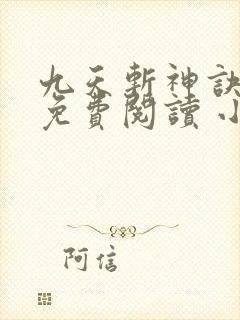 九天斬神訣
免費閱讀 小
阿信